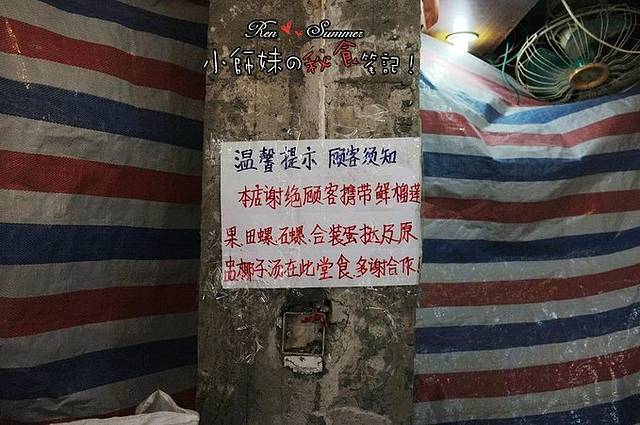 Ren Summer
小師妹の秘食笔記！
温馨提示 顾客须知
本店谢绝顾客携带鲜榴莲
果.田螺.石螺.合装蛋挞及原
盅椰子汤在此堂食.多谢合作！